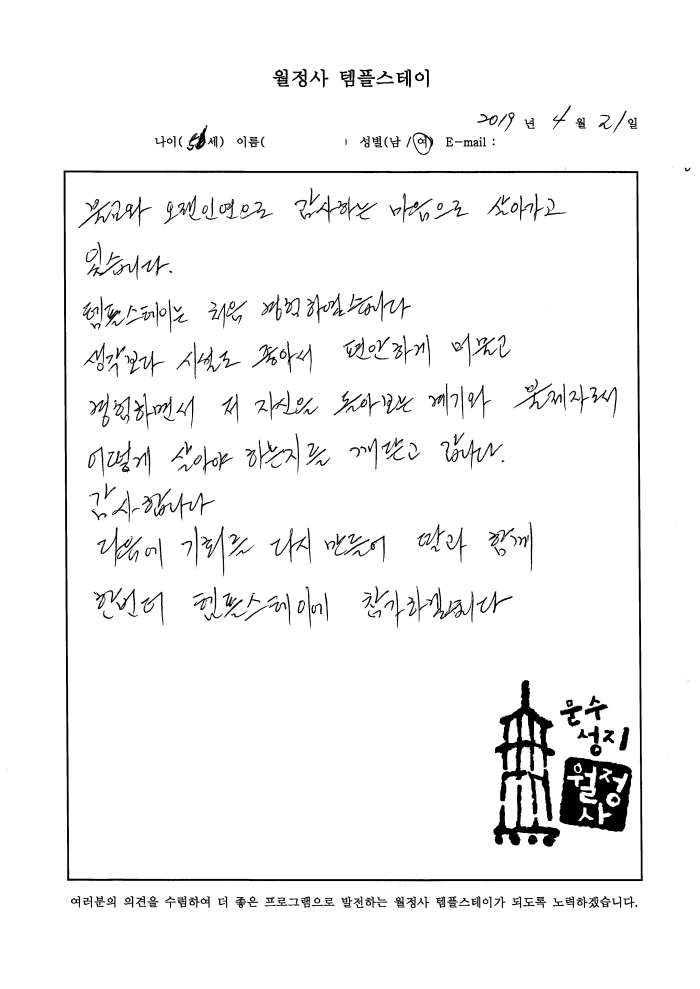 월정사 템플스테이
2019 년 4 월 21 일
나이( 56 세) 이름( ) 성별(남 / 여) E-mail :
불교와 오랜인연으로 감사하는 마음으로 살아가고
있습니다.
템플스테이는 처음 경험하였습니다
생각보다 시설도 좋아서 편안하게 머물고
경험하면서 저 자신을 돌아보는 계기와 불제자로써
어떻게 살아야 하는지를 깨닫고 갑니다.
감사합니다
다음에 기회를 다시 만들어 딸과 함께
한번더 템플스테이에 참가하겠습니다
문수
성지
월정
사
여러분의 의견을 수렴하여 더 좋은 프로그램으로 발전하는 월정사 템플스테이가 되도록 노력하겠습니다.